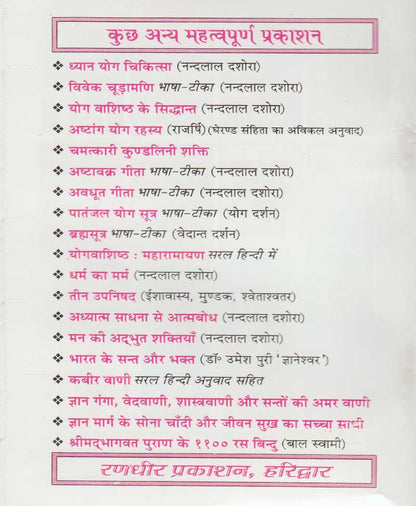 कुछ अन्य महत्वपूर्ण प्रकाशन
❖ ध्यान योग चिकित्सा (नन्दलाल दशोरा)
❖ विवेक चूड़ामणि भाषा-टीका (नन्दलाल दशोरा)
❖ योग वाशिष्ठ के सिद्धान्त (नन्दलाल दशोरा)
❖ अष्टांग योग रहस्य (राजर्षि) (घेरण्ड संहिता का अविकल अनुवाद)
❖ चमत्कारी कुण्डलिनी शक्ति
❖ अष्टावक्र गीता भाषा-टीका (नन्दलाल दशोरा)
❖ अवधूत गीता भाषा-टीका (नन्दलाल दशोरा)
❖ पातंजल योग सूत्र भाषा-टीका (योग दर्शन)
❖ ब्रह्मसूत्र भाषा-टीका (वेदान्त दर्शन)
❖ योगवाशिष्ठ : महारामायण सरल हिन्दी में
❖ धर्म का मर्म (नन्दलाल दशोरा)
❖ तीन उपनिषद (ईशावास्य, मुण्डक, श्वेताश्वतर)
❖ अध्यात्म साधना से आत्मबोध (नन्दलाल दशोरा)
❖ मन की अद्‌भुत शक्तियाँ (नन्दलाल दशोरा)
❖ भारत के सन्त और भक्त (डॉ॰ उमेश पुरी 'ज्ञानेश्वर')
❖ कबीर वाणी सरल हिन्दी अनुवाद सहित
❖ ज्ञान गंगा, वेदवाणी, शास्त्रवाणी और सन्तों की अमर वाणी
❖ ज्ञान मार्ग के सोना चाँदी और जीवन सुख का सच्चा साथी
❖ श्रीमद्‌भागवत पुराण के ११०० रस बिन्दु (बाल स्वामी)
रणधीर प्रकाशन, हरिद्वार